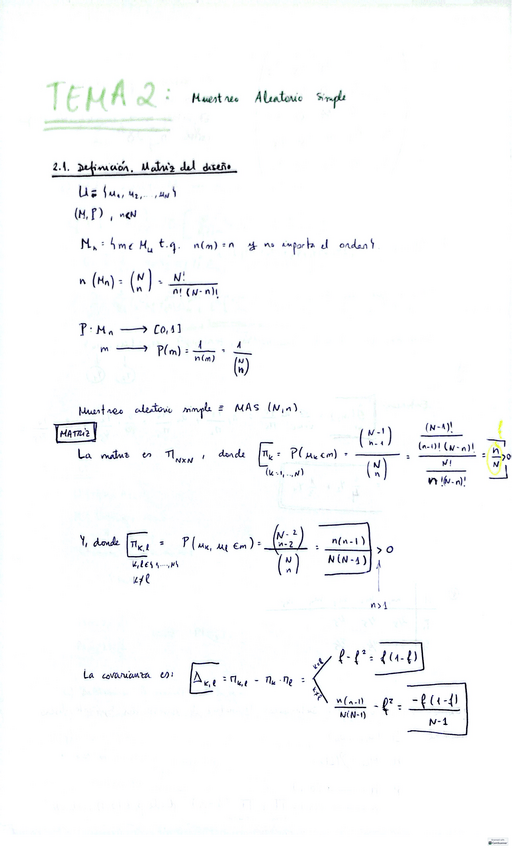 TEMA 2: Muestreo Aleatorio Simple
2.1. Definición. Matriz del diseño
U = {u₁, u₂, ..., u_N}
(M, P), n<N
M_n = {m ∈ M_u t.q. n(m) = n y no importa el orden}.
n(M_n) = (N n) = N! / n!(N-n)!
P: M_n → [0,1]
m → P(m) = 1/n(m) = 1/(N n)
Muestreo aleatorio simple ≡ MAS (N,n).
MATRIZ
La matriz es Π_{N×N}, donde Π_k = P(u_k ∈ m) = (N-1 n-1)/(N n) = ((N-1)!/(n-1)!(N-n)!)/(N!/n!(N-n)!) = n/N > 0
(k=1,...,N)
f
Y, donde Π_{k,l} = P(u_k, u_l ∈ m) = (N-2 n-2)/(N n) = n(n-1)/N(N-1) > 0
k,l ∈ {1,...,N}
k≠l
n>1
La covarianza es: Δ_{k,l} = Π_{k,l} - Π_k · Π_l =
k=l f - f² = f(1-f)
k≠l n(n-1)/N(N-1) - f² = -f(1-f)/N-1